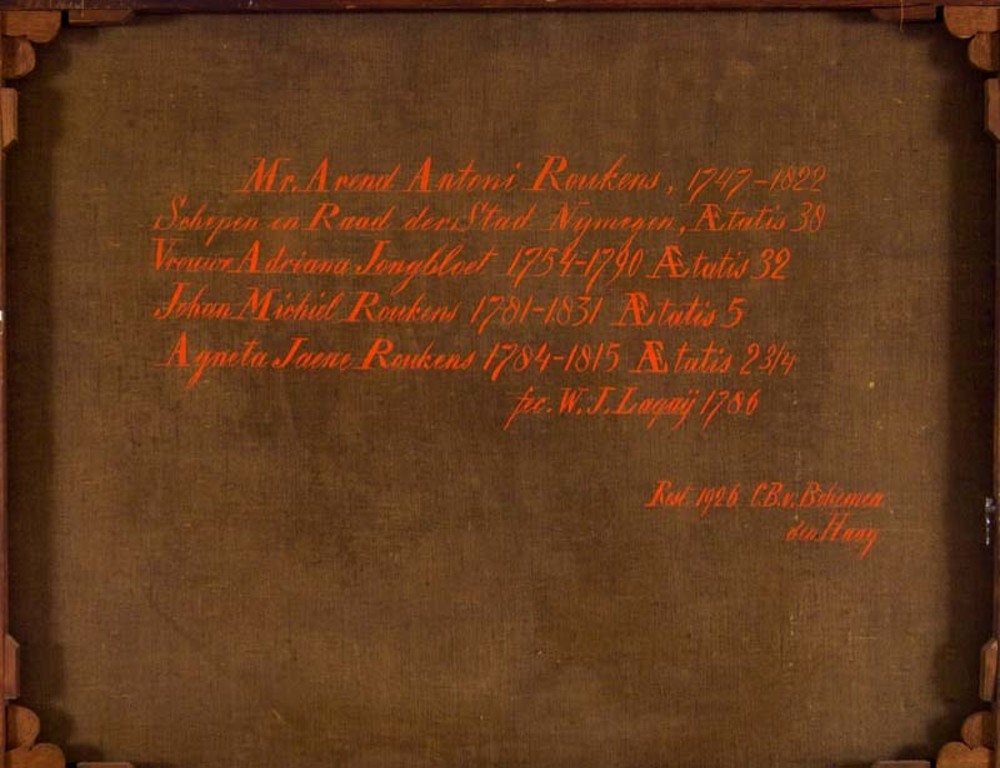 Mr. Arend Antoni Roukens, 1747-1822
Schepen en Raad der Stad Nymegen, Ætatis 38
Vrouwe Adriana Jongbloet 1754-1790 Ætatis 32
Johan Michiel Roukens 1781-1831 Ætatis 5
Agneta Jaene Roukens 1784-1815 Ætatis 2 3/4
fec. W. J. Laqaÿ 1786
Rest. 1926 C.B.v. Bohemen
den Haag